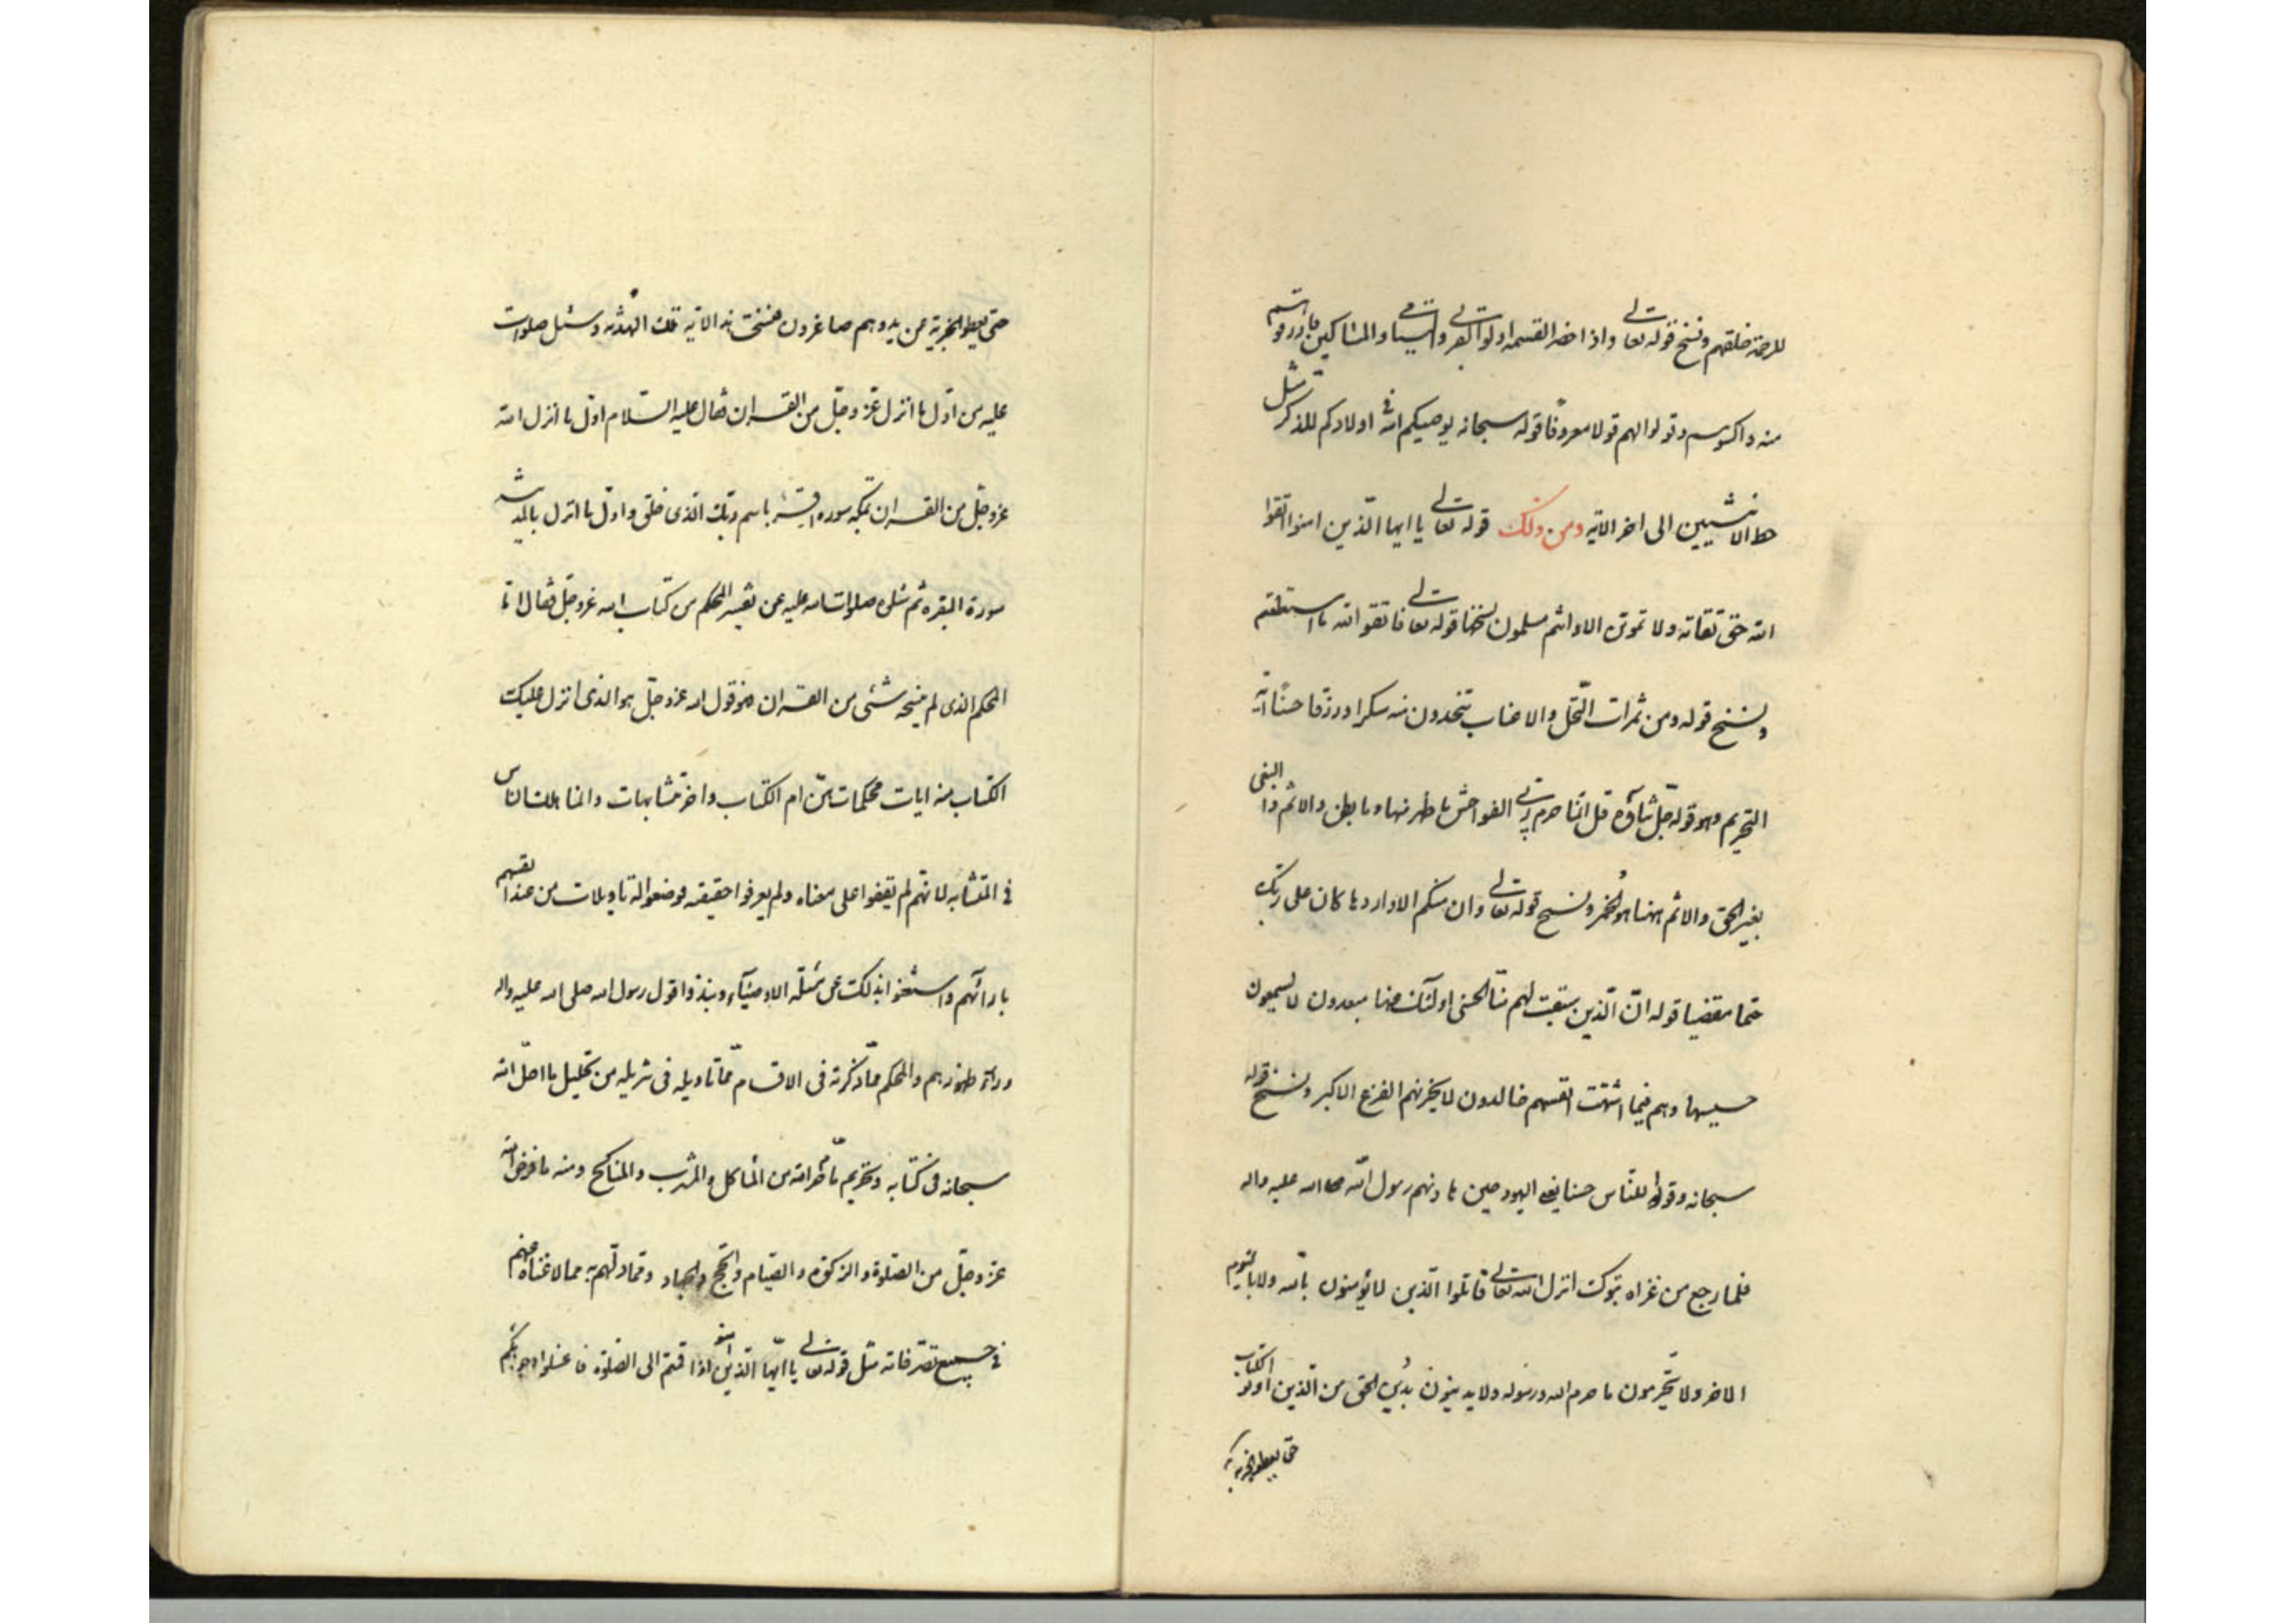 للرحمة خلقهم ونسخ قوله تعالى واذا حضر القسمة اولوا القربى واليتامى والمساكين فارزقوهم
منه واكسوهم وقولوا لهم قولا معروفا قوله سبحانه يوصيكم الله فى اولادكم للذكر مثل
حظ الانثيين الى اخر الاية ومن ذلك قوله تعالى يا ايها الذين امنوا اتقوا
الله حق تقاته ولا تموتن الا وانتم مسلمون نسخها قوله تعالى فاتقوا الله ما استطعتم
ونسخ قوله ومن ثمرات النخل والاعناب تتخذون منه سكرا ورزقا حسنا آية
التحريم وهو قوله جل ثناؤه قل انما حرم ربى الفواحش ما ظهر منها وما بطن والاثم والبغى
بغير الحق والاثم ههنا هو الخمر ونسخ قوله تعالى وان منكم الا واردها كان على ربك
حتما مقضيا قوله ان الذين سبقت لهم منا الحسنى اولئك عنها مبعدون لا يسمعون
حسيسها وهم فيما اشتهت انفسهم خالدون لا يحزنهم الفزع الاكبر ونسخ قوله
سبحانه وقولوا للناس حسنا يعنى اليهود حين هادنهم رسول الله صلى الله عليه واله
فلما رجع من غزاه تبوك انزل الله تعالى قاتلوا الذين لا يؤمنون بالله ولا باليوم
الاخر ولا يحرمون ما حرم الله ورسوله ولا يدينون دين الحق من الذين اوتوا الكتاب
حتى يعطوا الجزية
حتى يعطوا الجزية عن يد وهم صاغرون فنسخت هذه الاية تلك الهدنه وسئل صلوات
عليه من اول ما انزل عز وجل من القران فقال عليه السلام اول ما انزل الله
عز وجل من القران بمكة سورة اقرء باسم ربك الذى خلق واول ما انزل بالمدينه
سورة البقره ثم سئلوه صلوات الله عليه عن تفسير المحكم من كتاب الله عز وجل فقال اما
المحكم الذى لم ينسخه شئى من القران فهو قول الله عز وجل هو الذى انزل عليك
الكتاب منه ايات محكمات هن ام الكتاب واخر متشابهات وانما هلك الناس
فى المتشابه لانهم لم يقفوا على معناه ولم يعرفوا حقيقته فوضعوا له تاويلات من عند انفسهم
بارائهم واستغنوا بذلك عن مسئلة الاوصياء ونبذوا قول رسول الله صلى الله عليه واله
وراء ظهورهم والمحكم مما ذكرته فى الاقسام مما تاويله فى تنزيله من تحليل ما احل الله
سبحانه فى كتابه وتحريم ما حرم الله من المأكل والمشرب والمناكح ومنه ما فرض الله
عز وجل من الصلوة والزكوة والصيام والحج والجهاد ومما دلهم به مما لا غناء عنهم
فى جميع تصرفاته مثل قوله تعالى يا ايها الذين امنوا اذا قمتم الى الصلوة فاغسلوا وجوهكم